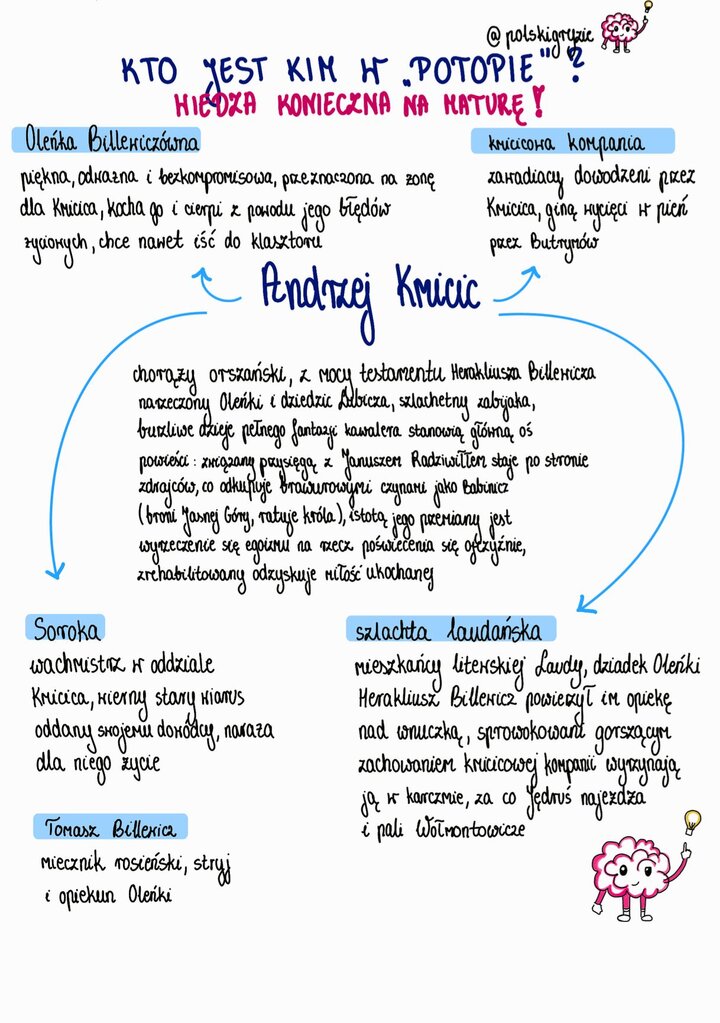 @polskigryzie
KTO JEST KIM W „POTOPIE"?
WIEDZA KONIECZNA NA MATURĘ!
Oleńka Billewiczówna
piękna, odważna i bezkompromisowa, przeznaczona na żonę
dla Kmicica, kocha go i cierpi z powodu jego błędów
życiowych, chce nawet iść do klasztoru
kmicicowa kompania
zawadiacy dowodzeni przez
Kmicica, giną wycięci w pień
przez Butrymów
Andrzej Kmicic
chorąży orszański, z mocy testamentu Herakliusza Billewicza
narzeczony Oleńki i dziedzic Lubicza, szlachetny zabijaka,
burzliwe dzieje pełnego fantazji kawalera stanowią główną oś
powieści: związany przysięgą z Januszem Radziwiłłem staje po stronie
zdrajców, co odkupuje brawurowymi czynami jako Babinicz
(broni Jasnej Góry, ratuje króla), istotą jego przemiany jest
wyrzeczenie się egoizmu na rzecz poświecenia się ojczyźnie,
zrehabilitowany odzyskuje miłość ukochanej
Soroka
wachmistrz w oddziale
Kmicica, wierny stary wiarus
oddany swojemu dowódcy, naraża
dla niego życie
szlachta laudańska
mieszkańcy litewskiej Laudy, dziadek Oleńki
Herakliusz Billewicz powierzył im opiekę
nad wnuczką, sprowokowani gorszącym
zachowaniem kmicicowej kompanii wyrzynają
ją w karczmie, za co Jędruś najeżdża
i pali Wołmontowicze
Tomasz Billewicz
miecznik rosieński, stryj
i opiekun Oleńki